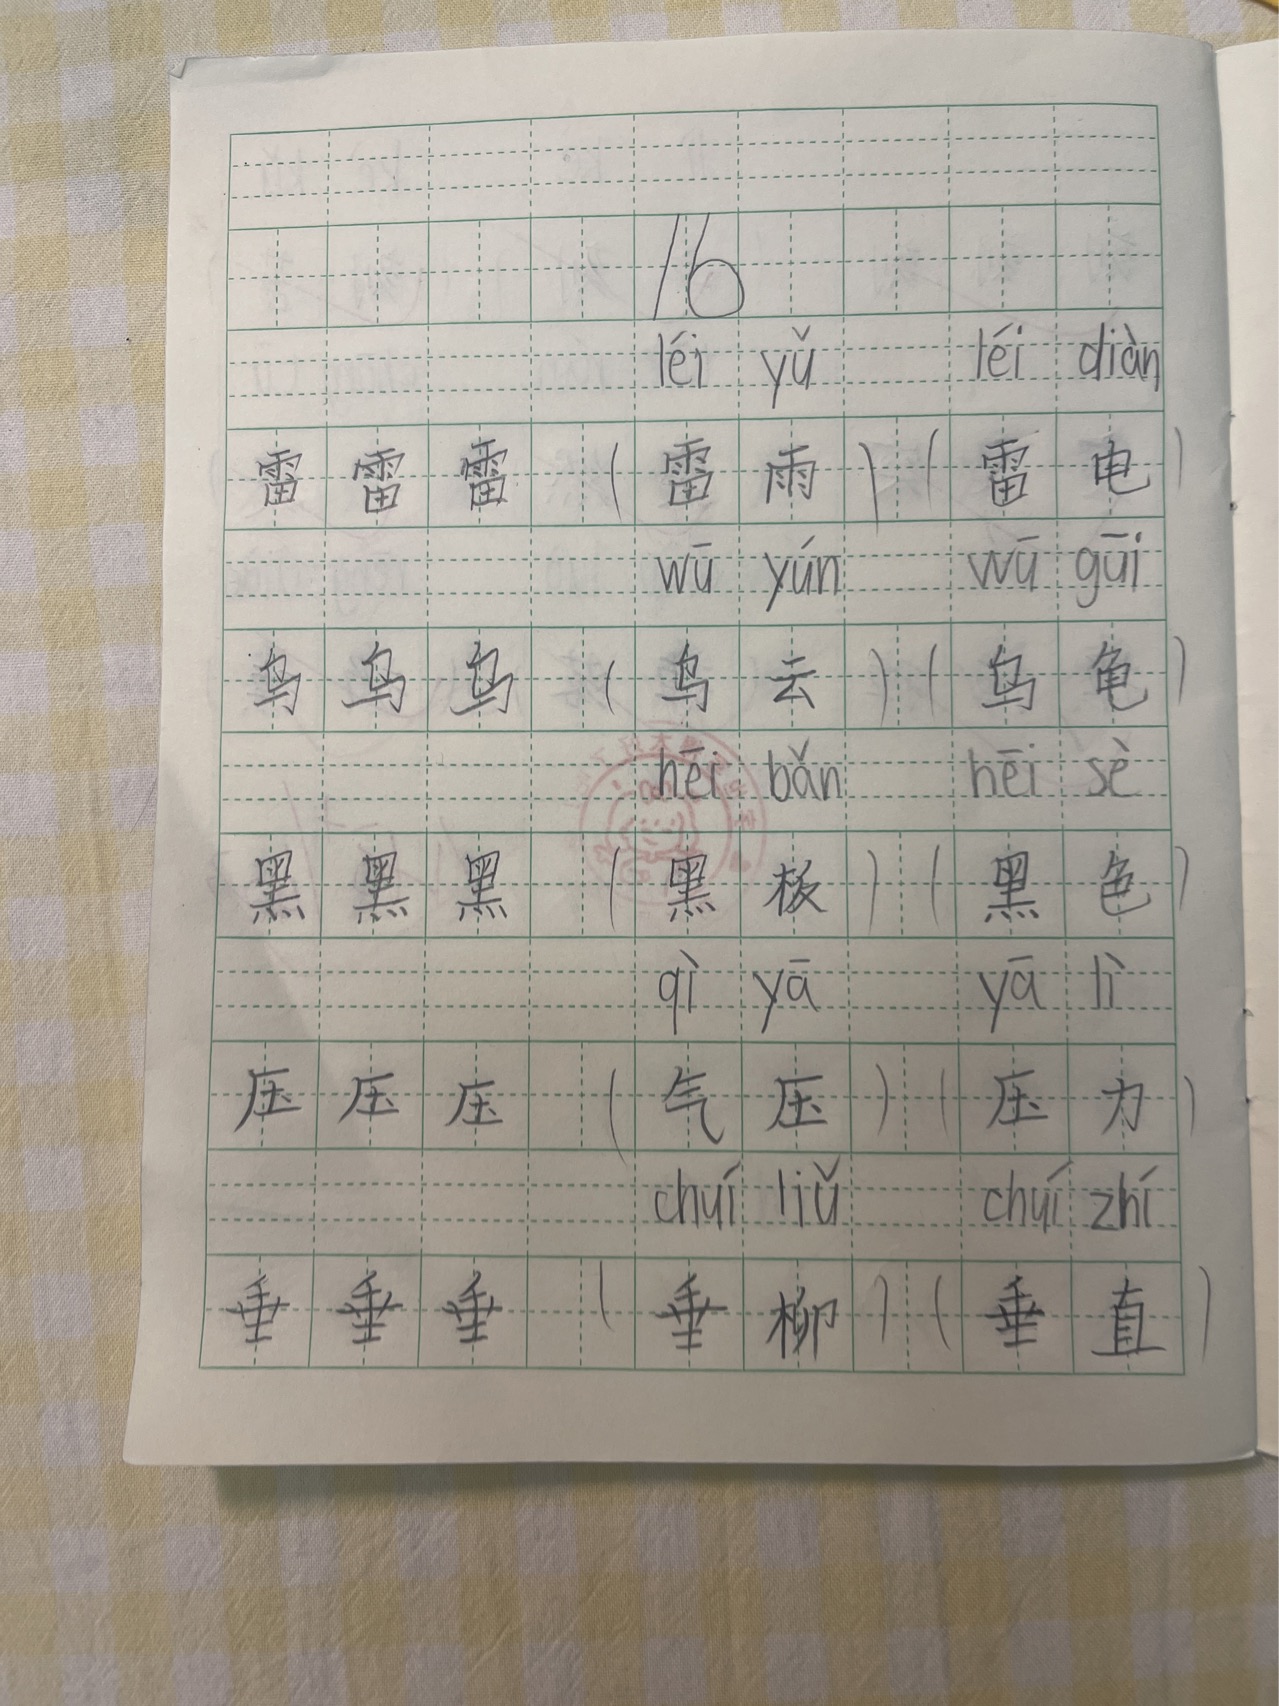 16
léi yǔ léi diàn
雷 雷 雷 (雷 雨) (雷 电)
wū yún wū gūi
乌 乌 乌 (乌 云) (乌 龟)
hēi bǎn hēi sè
黑 黑 黑 (黑 板) (黑 色)
qì yā yā lì
压 压 压 (气 压) (压 力)
chuí liǔ chuí zhí
垂 垂 垂 (垂 柳) (垂 直)